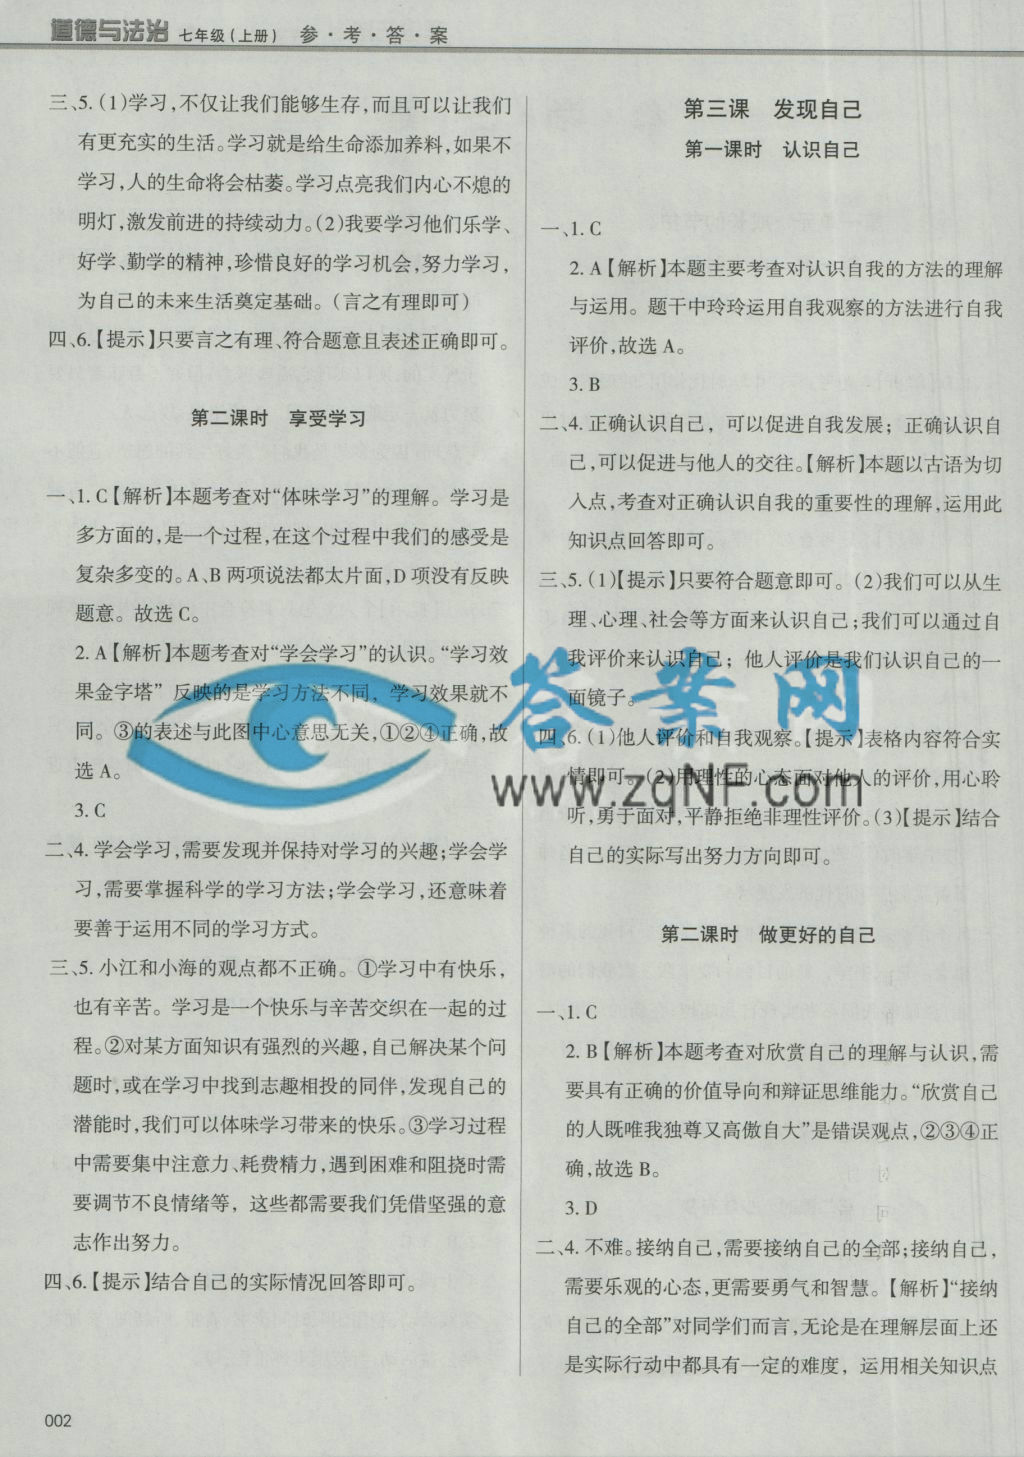 道德与法治 七年级(上册) 参·考·答·案
三、5.(1)学习,不仅让我们能够生存,而且可以让我们
有更充实的生活。学习就是给生命添加养料,如果不
学习,人的生命将会枯萎。学习点亮我们内心不熄的
明灯,激发前进的持续动力。(2)我要学习他们乐学、
好学、勤学的精神,珍惜良好的学习机会,努力学习,
为自己的未来生活奠定基础。(言之有理即可)
四、6.【提示】只要言之有理、符合题意且表述正确即可。
第二课时 享受学习
一、1. C【解析】本题考查对“体味学习”的理解。学习是
多方面的,是一个过程,在这个过程中我们的感受是
复杂多变的。A、B 两项说法都太片面,D 项没有反映
题意。故选 C。
2. A【解析】本题考查对“学会学习”的认识。“学习效
果金字塔”反映的是学习方法不同,学习效果就不
同。③的表述与此图中心意思无关,①②④正确,故
选 A。
3. C
二、4. 学会学习,需要发现并保持对学习的兴趣;学会学
习,需要掌握科学的学习方法;学会学习,还意味着
要善于运用不同的学习方式。
三、5. 小江和小海的观点都不正确。①学习中有快乐,
也有辛苦。学习是一个快乐与辛苦交织在一起的过
程。②对某方面知识有强烈的兴趣,自己解决某个问
题时,或在学习中找到志趣相投的同伴,发现自己的
潜能时,我们可以体味学习带来的快乐。③学习过程
中需要集中注意力、耗费精力,遇到困难和阻挠时需
要调节不良情绪等,这些都需要我们凭借坚强的意
志作出努力。
四、6.【提示】结合自己的实际情况回答即可。
第三课 发现自己
第一课时 认识自己
一、1. C
2. A【解析】本题主要考查对认识自我的方法的理解
与运用。题干中玲玲运用自我观察的方法进行自我
评价,故选 A。
3. B
二、4. 正确认识自己,可以促进自我发展;正确认识自
己,可以促进与他人的交往。【解析】本题以古语为切
入点,考查对正确认识自我的重要性的理解,运用此
知识点回答即可。
三、5.(1)【提示】只要符合题意即可。(2)我们可以从生
理、心理、社会等方面来认识自己;我们可以通过自
我评价来认识自己;他人评价是我们认识自己的一
面镜子。
四、6.(1)他人评价和自我观察。【提示】表格内容符合实
情即可。(2)用理性的心态面对他人的评价,用心聆
听,勇于面对,平静拒绝非理性评价。(3)【提示】结合
自己的实际写出努力方向即可。
第二课时 做更好的自己
一、1. C
2. B【解析】本题考查对欣赏自己的理解与认识,需
要具有正确的价值导向和辩证思维能力。“欣赏自己
的人既唯我独尊又高傲自大”是错误观点,②③④正
确,故选 B。
3. D
二、4. 不难。接纳自己,需要接纳自己的全部;接纳自己,
需要乐观的心态,更需要勇气和智慧。【解析】“接纳
自己的全部”对同学们而言,无论是在理解层面上还
是实际行动中都具有一定的难度,运用相关知识点
002
答案网
www.zqNF.com